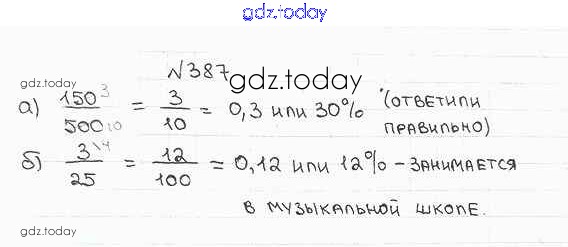 gdz.today
№387
gdz.today
gdz.today
а) 150³/500₁₀ = 3/10 = 0,3 или 30% (ответили
правильно)
б) 3\⁴/25 = 12/100 = 0,12 или 12% – занимается
в музыкальной школе.
gdz.today
gdz.today